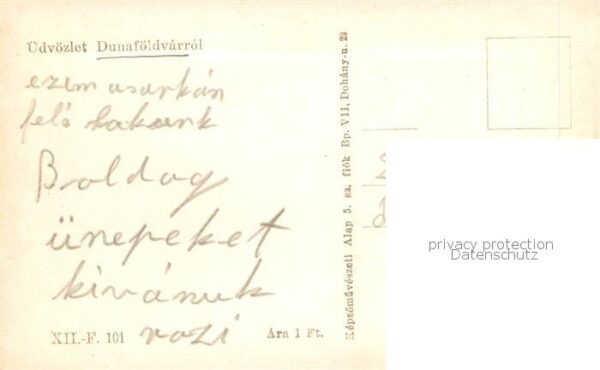 Üdvözlet Dunaföldvárról
ezem usarkán
felé lakunk
Boldog
ünepeket
kívánuk
rozi
XII.-F. 101
Ára 1 Ft.
Képzőművészeti Alap 5. sz. fiók Bp. VII, Dohány-u. 22
privacy protection
Datenschutz